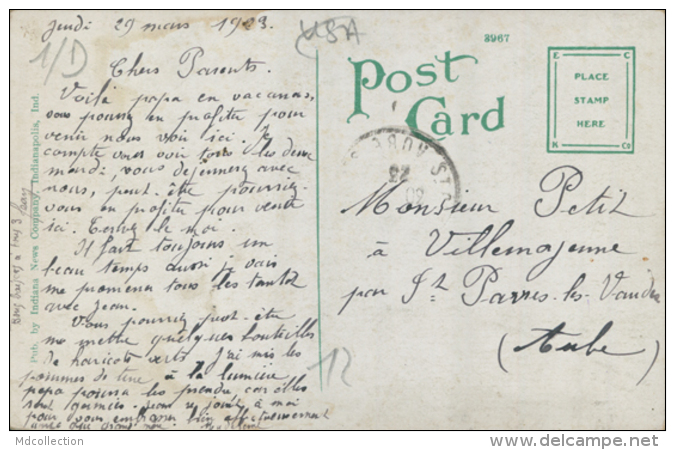 Jeudi 29 mars 1923
USA
1/D
Chers Parents.
Voilà papa en vacances,
vous pourrez en profiter pour
venir nous voir ici. Je
compte vous voir tous les deux
mardi, vous déjeunerez avec
nous, peut-être pourriez-
vous en profiter pour venir
ici. Ecrivez le moi.
Il fait toujours un
beau temps aussi je vais
me promener tous les tantôt
avec Jean.
Vous pourrez peut-être
me mettre quelques bouteilles
de haricots verts. J'ai mis les
pommes de terre à la lumière
papa pourra les prendre car elles
sont germées. Jean se joint à moi
pour vous embrasser bien affectueusement
8967
Post Card
E C
PLACE
STAMP
HERE
K Co
AUBE
23
Monsieur Petit
à Villemajenne
par St Parres-les-Vaudes
(Aube)
12
Pub. by Indiana News Company, Indianapolis, Ind.
Mdcollection
delcampe.net